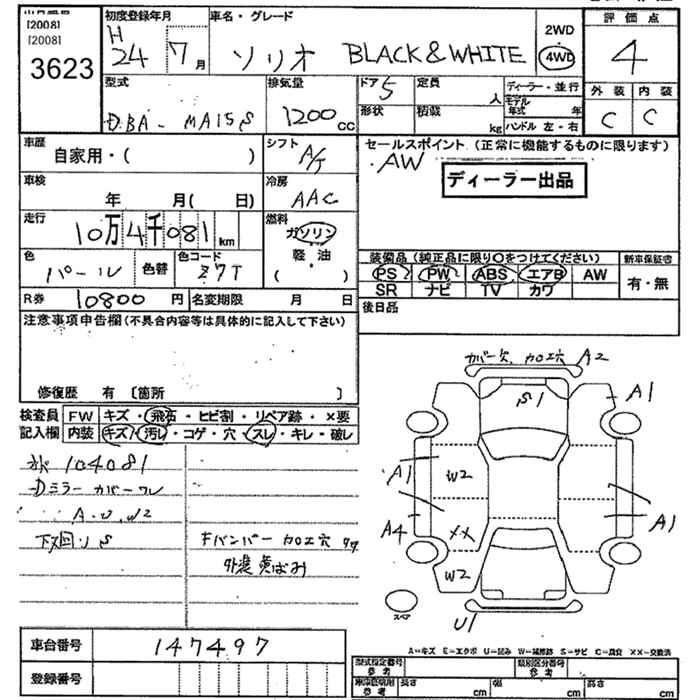 [2008]
[2008]
3623
初度登録年月
H
24 7月
車名・グレード
ソリオ BLACK & WHITE
2WD
4WD
評価点
4
外装 内装
C C
型式
DBA - MA15S
排気量
1200 CC
ドア 5
形状
定員 人
積載 kg
ディーラー・並行
モデル年式 年
ハンドル 左・右
車歴
自家用・( )
シフト
A/T
セールスポイント (正常に機能するものに限ります)
AW
ディーラー出品
車検
年 月( 日)
冷房
AAC
走行
10万4千081km
燃料
ガソリン
軽・油
( )
色
パール
色替
色コード
Z7T
装備品(純正品に限り○をつけてください)
新車保証書
PS PW ABS エアB AW
SR ナビ TV カワ
有・無
R券 10800円
名変期限 月 日
後日品
注意事項申告欄(不具合内容等は具体的に記入して下さい)
修復歴 有〔箇所 〕
検査員記入欄
FW キズ・飛石・ヒビ割・リペア跡・×要
内装 キズ・汚レ・コゲ・穴・スレ・キレ・破レ
104081
Dミラーカバーワレ
A.U.W2
下回りS
Fバンパー カロエ穴
外装黄ばみ
カバー穴 カロエ穴 A2
S1
A1
A1
W2
A4
XX
A1
W2
U1
スペア
A=キズ E=エクボ U=凹み W=補修跡 S=サビ C=腐食 XX=交換済
車台番号 147497
登録番号
型式指定番号
参考
類別区分番号
参考
車庫証明用
参考
長さ cm
幅 cm
高さ cm